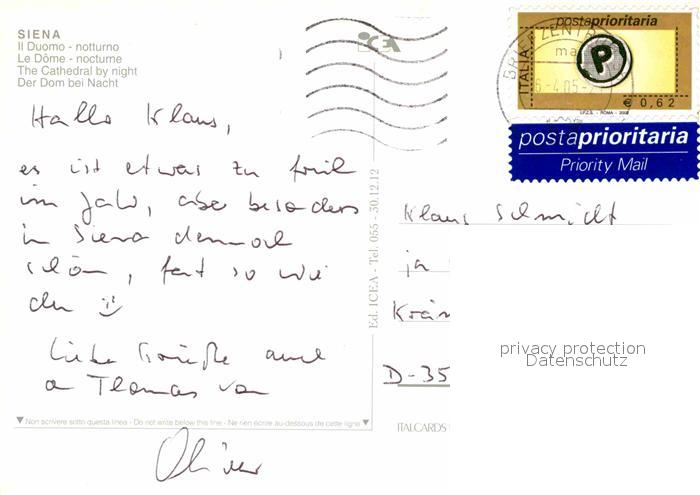 SIENA
Il Duomo - notturno
Le Dôme - nocturne
The Cathedral by night
Der Dom bei Nacht
ICEA
postaprioritaria
ITALIA
P
€ 0,62
I.P.Z.S. - ROMA - 2002
BRIEFZENTR
6.-4.05-
postaprioritaria
Priority Mail
Hallo Klaus,
es ist etwas zu früh
im Jahr, aber besonders
in Siena dennoch
schön, fast so wie
du
Liebe Grüße auch
an Thomas von
Oliver
Ed. ICEA - Tel. 055 - 30.12.12
Klaus Schmidt
ja
D-35
privacy protection
Datenschutz
Non scrivere sotto questa linea - Do not write below this line - Ne rien écrire au-dessous de cette ligne
ITALCARDS